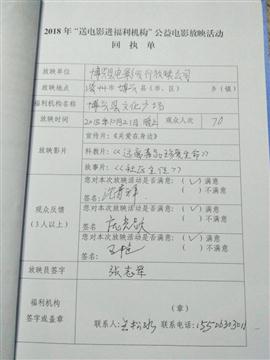 2018年“送电影进福利机构”公益电影放映活动
回执单
放映单位 博兴县电影发行放映公司
放映地点 滨州市 博兴 县(市、区) 乡(镇)
福利机构名称 博兴县文化广场
放映时间 2018年10月21日 晚上 观众人次 70
宣传片:《关爱在身边》
放映影片 科教片:《远离毒品 珍爱生命》
故事片:
观众反馈
(3人以上)
您对本次放映活动是否满意:(√)满意
( )不满意
签名:
您对本次放映活动是否满意:(√)满意
( )不满意
签名:
您对本次放映活动是否满意:(√)满意
( )不满意
签名:
放映员签字 张志军
福利机构
签字或盖章
(章)
联系人: 联系电话: